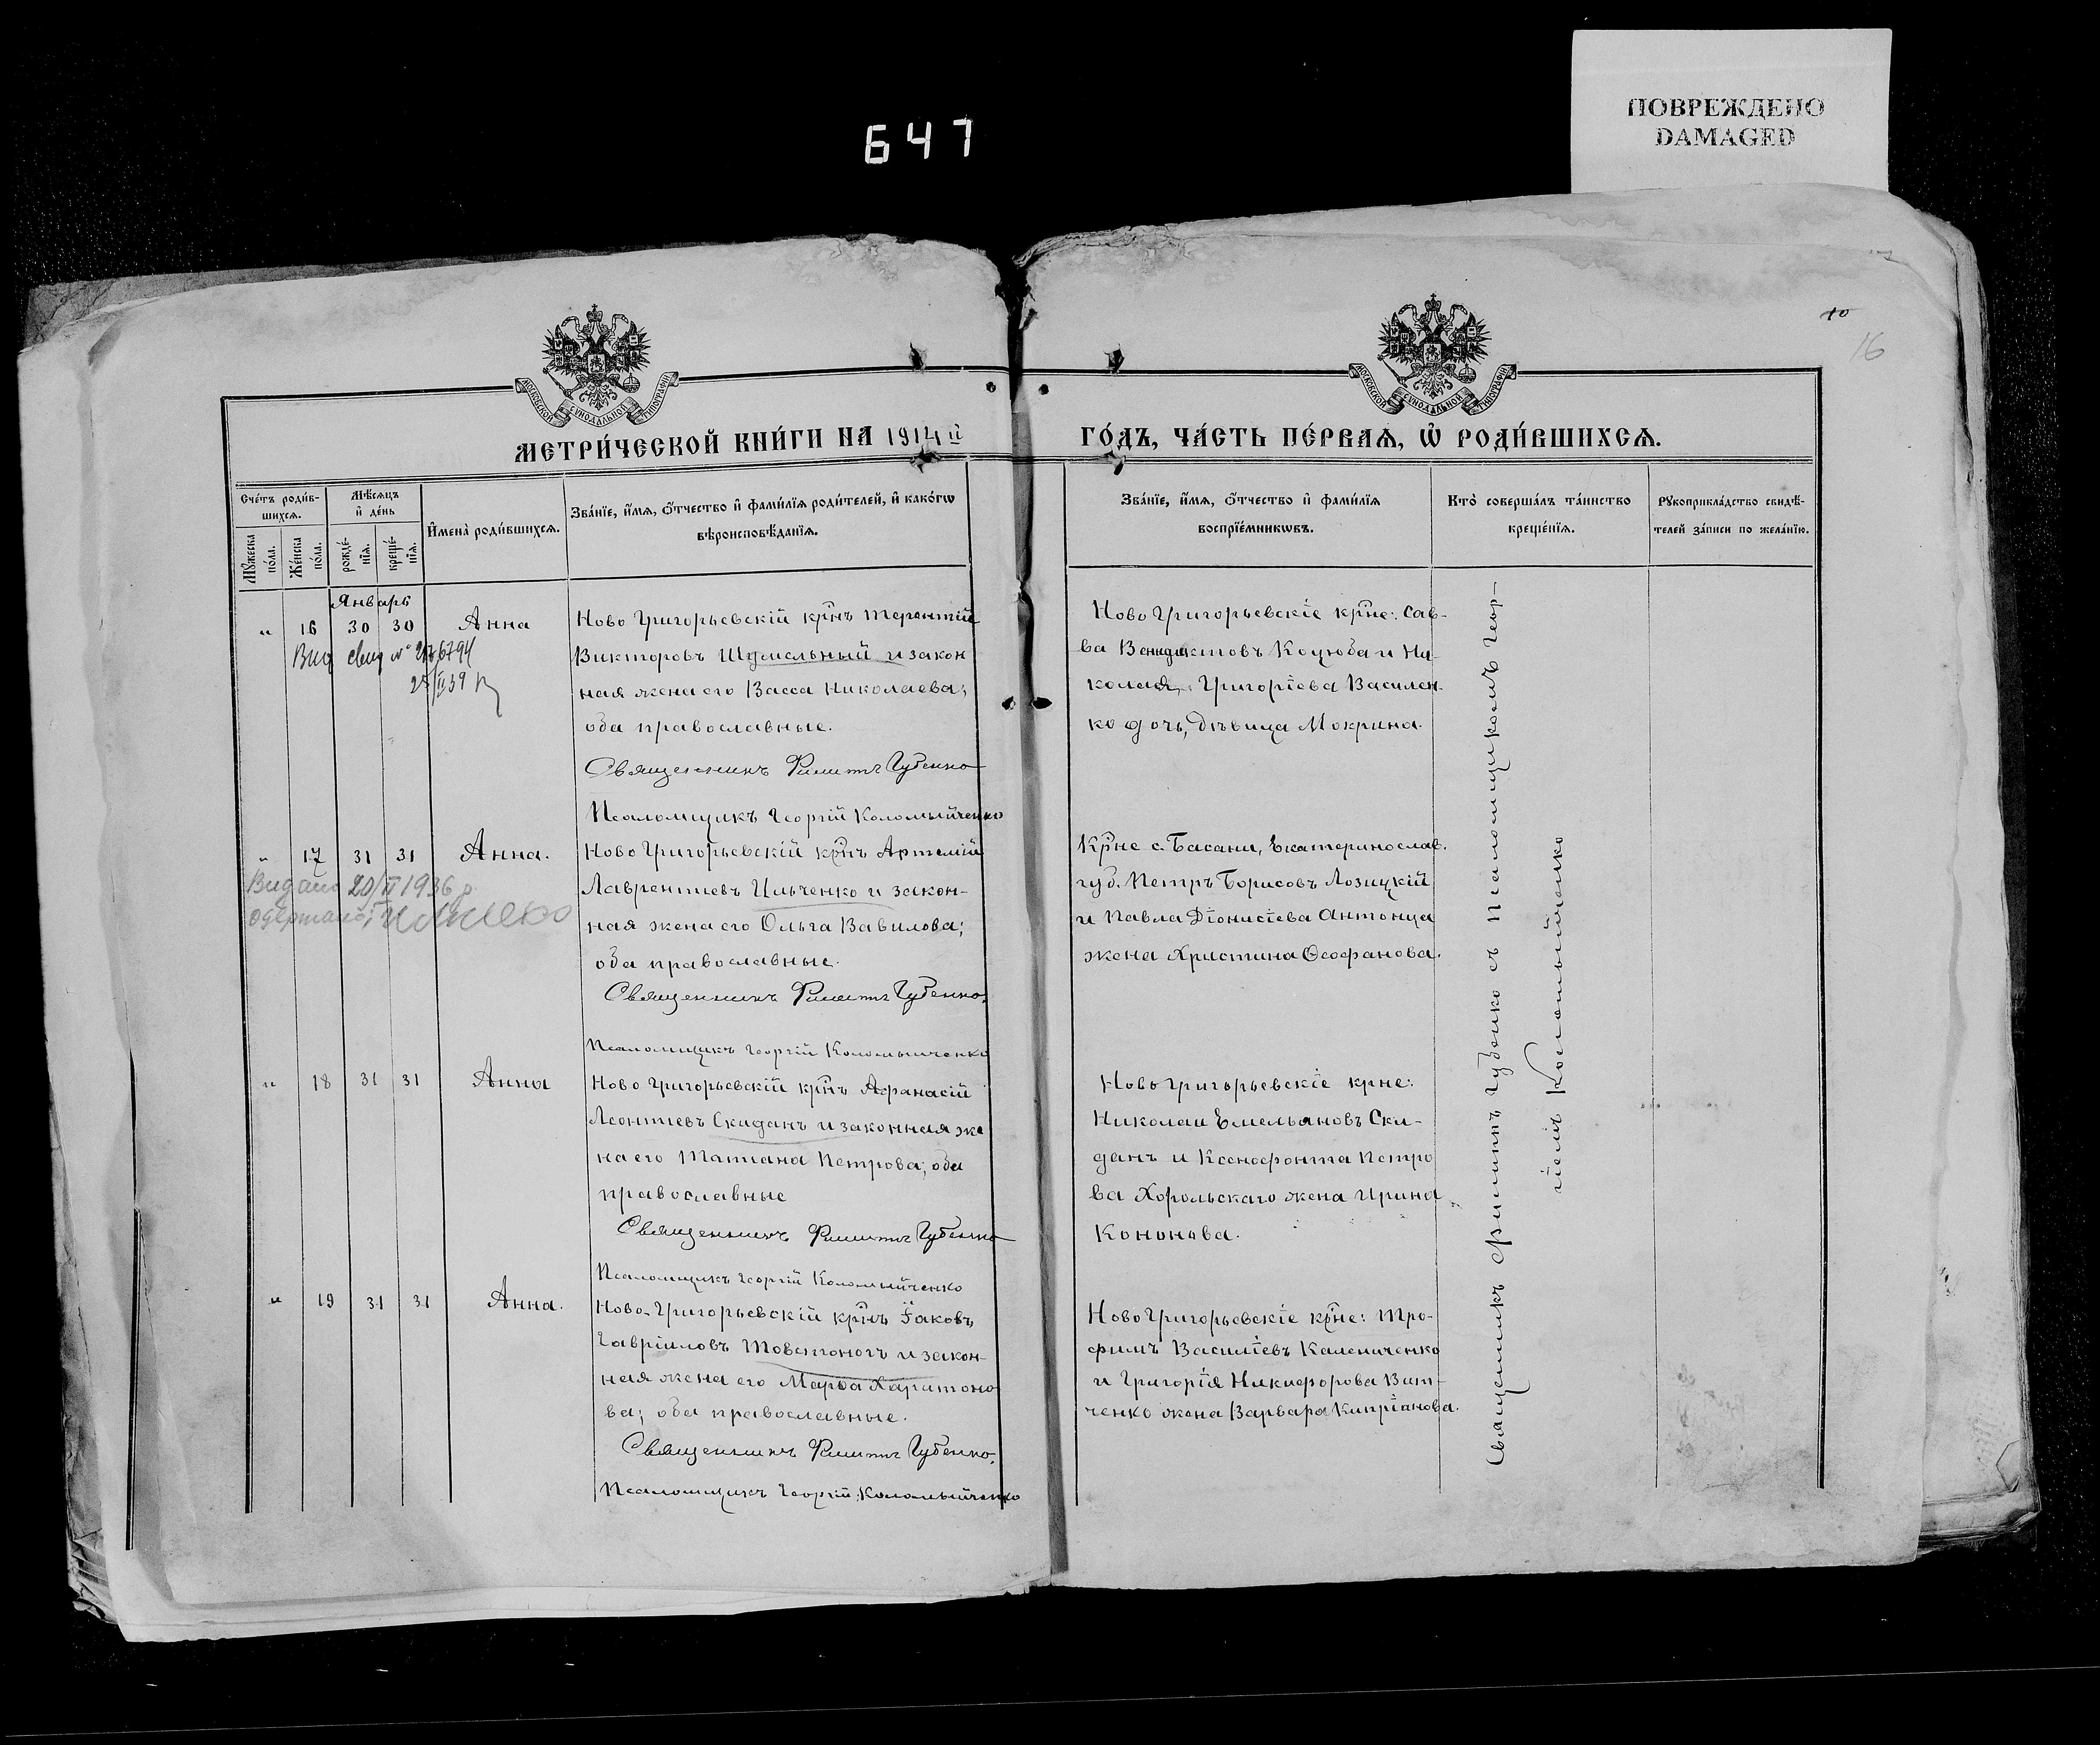 647
ПОВРЕЖДЕНО
DAMAGED
10
16
МОСКОВСКОЙ СУНОДАЛЬНОЙ ТИПОГРАФІИ
МОСКОВСКОЙ СУНОДАЛЬНОЙ ТИПОГРАФІИ
МЕТРИ́ЧЕСКОЙ КНИ́ГИ НА 1914й
ГО́ДЪ, ЧА́СТЬ ПЕ́РВАѦ, Ѡ҆ РОДИ́ВШИХСѦ.
Сче́тъ роди́в-
шихсѧ.
Мꙋ́жеска по́ла.
Же́нска по́ла.
Мѣ́сѧцъ
и҆ де́нь
рожде́-
нїѧ.
креще́-
нїѧ.
И҆мена̀ роди́вшихсѧ.
Зва́нїе, и҆́мѧ, ѻ҆́тчество и҆ фами́лїѧ роди́телей, и҆ како́гѡ
вѣроисповѣ́данїѧ.
Зва́нїе, и҆́мѧ, ѻ҆́тчество и҆ фами́лїѧ
воспрїе́мникѡвъ.
Кто̀ соверша́лъ та́инство
креще́нїѧ.
Рꙋкоприкла́дство свидѣ́-
телей за́писи по жела́нїю.
Январь
" 16 30 30 Анна
Ново Григорьевскій крнъ Терентій
Викторовъ Шумельный и закон
ная жена его Васса Николаева;
оба православные.
Священникъ Филиппъ Губенко
Псаломщикъ Георгій Коломыйченко
Ново Григорьевскіе крне: Сав-
ва Венедиктовъ Коцюба и Ни-
колая Григоріева Василен-
ко дочь, дѣвица Мокрина.
" 17 31 31 Анна.
Видано 20/II 1936 р
одержано:
Ново Григорьевскій крнъ Артемій
Лаврентіевъ Ильченко и закон-
ная жена его Ольга Вавилова;
оба православные.
Священникъ Филиппъ Губенко.
Псаломщикъ Георгій Коломыйченко
Крне с. Басани, Екатеринослав.
губ. Петръ Борисовъ Лозицкій
и Павла Діонисіева Антонца
жена Христина Ѳеофанова.
" 18 31 31 Анна
Ново Григорьевскій крнъ Афанасій
Леонтіевъ Скиданъ и законная же
на его Татіана Петрова; оба
православные
Священникъ Филиппъ Губенко
Псаломщикъ Георгій Коломыйченко
Ново Григорьевскіе крне:
Николай Емельяновъ Ски-
данъ и Ксенофонта Петро
ва Хорольскаго жена Ирина
Кононова.
" 19 31 31 Анна.
Ново-Григорьевскій крнъ Іаковъ
Гавріиловъ Товстоногъ и закон-
ная жена его Марѳа Харитоно
ва; оба православные.
Священникъ Филиппъ Губенко.
Псаломщикъ Георгій Коломыйченко
Ново Григорьевскіе крне: Тро-
фимъ Василіевъ Калениченко
и Григорія Никифорова Вит-
ченко жена Варвара Кипріанова.
Священникъ Филиппъ Губенко съ псаломщикомъ Геор-
гіемъ Коломыйченко